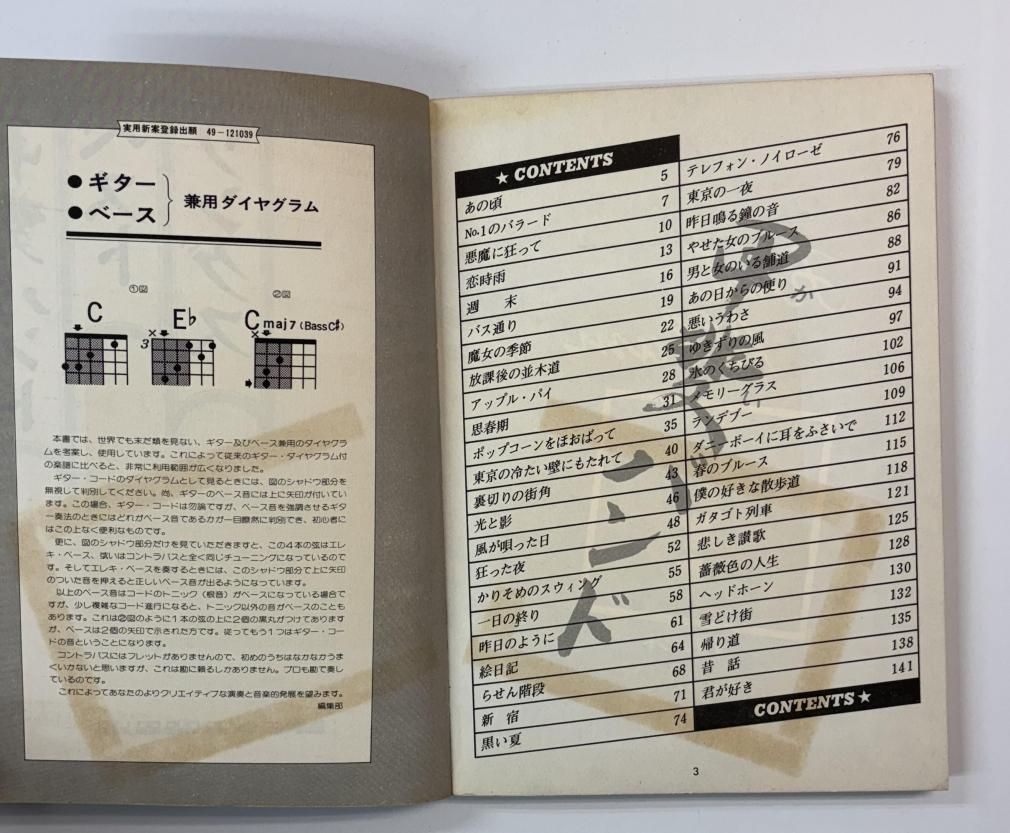 実用新案登録出願 49-121039
●ギター
●ベース
兼用ダイヤグラム
①図
②図
C
E♭
Cmaj7(BassC♯)
×
3
×
本書では、世界でも末だ類を見ない、ギター及びベース兼用のダイヤグラ
ムを考案し、使用しています。これによって従来のギター・ダイヤグラム付
の楽譜に比べると、非常に利用範囲が広くなりました。
ギター・コードのダイヤグラムとして見るときには、図のシャドウ部分を
無視して判別してください。尚、ギターのベース音には上に矢印が付いてい
ます。この場合、ギター・コードは勿論ですが、ベース音を強調させるギタ
ー奏法のときにはどれがベース音であるかが一目瞭然に判別でき、初心者に
はこの上なく便利なものです。
更に、図のシャドウ部分だけを見ていただきますと、この4本の弦はエレ
キ・ベース、或いはコントラバスと全く同じチューニングになっているので
す。そしてエレキ・ベースを奏するときには、このシャドウ部分で上に矢印
のついた音を押えると正しいベース音が出るようになっています。
以上のベース音はコードのトニック（根音）がベースになっている場合で
すが、少し複雑なコード進行になると、トニック以外の音がベースのことも
あります。これは②図のように1本の弦の上に2個の黒丸がつけてあります
が、ベースは2個の矢印で示された方です。従ってもう1つはギター・コー
ドの音ということになります。
コントラバスにはフレットがありませんので、初めのうちはなかなかうま
くいかないと思いますが、これは勘に頼るしかありません。プロも勘で奏し
ているのです。
これによってあなたのよりクリエイティブな演奏と音楽的発展を望みます。
編集部
★ CONTENTS
あの頃 5
No.1のバラード 7
悪魔に狂って 10
恋時雨 13
週 末 16
バス通り 19
魔女の季節 22
放課後の並木道 25
アップル・パイ 28
思春期 31
ポップコーンをほおばって 35
東京の冷たい壁にもたれて 40
裏切りの街角 43
光と影 46
風が唄った日 48
狂った夜 52
かりそめのスウィング 55
一日の終り 58
昨日のように 61
絵日記 64
らせん階段 68
新 宿 71
黒い夏 74
テレフォン・ノイローゼ 76
東京の一夜 79
昨日鳴る鐘の音 82
やせた女のブルース 86
男と女のいる舗道 88
あの日からの便り 91
悪いうわさ 94
ゆきずりの風 97
氷のくちびる 102
メモリーグラス 106
ランデブー 109
ダニーボーイに耳をふさいで 112
春のブルース 115
僕の好きな散歩道 118
ガタゴト列車 121
悲しき讃歌 125
薔薇色の人生 128
ヘッドホーン 130
雪どけ街 132
帰り道 135
昔 話 138
君が好き 141
CONTENTS ★
甲斐バンド
かい
3